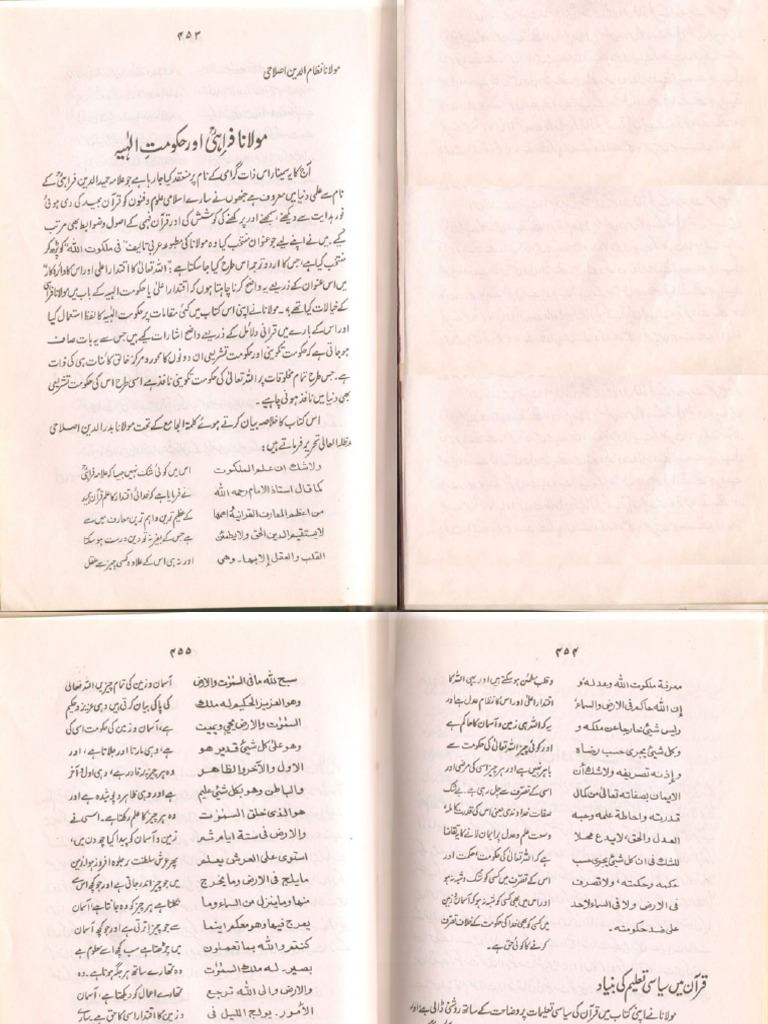 ۴۵۳
مولانا نظام الدین اصلاحی
مولانا فراہیؒ اور حکومتِ الٰہیہ
آج کا یہ سیمینار اس ذات گرامی کے نام پر منعقد کیا جا رہا ہے جو علامہ حمید الدین فراہیؒ کے
نام سے علمی دنیا میں معروف ہے جنھوں نے سارے اسلامی علوم و فنون کو قرآن مجید کی دی ہوئی
نور ہدایت سے دیکھنے، سمجھنے اور پرکھنے کی کوشش کی اور قرآن فہمی کے اصول و ضوابط بھی مرتب
کیے۔ میں نے اپنے لیے جو عنوان منتخب کیا وہ مولانا کی مطبوعہ عربی تالیف "فی ملکوت اللہ" کو پڑھ کر
منتخب کیا ہے، جس کا اردو ترجمہ اس طرح کیا جا سکتا ہے: "اللہ تعالیٰ کا اقتدار اعلیٰ اور اس کا دائرہ کار"
میں اس عنوان کے ذریعے یہ واضح کرنا چاہتا ہوں کہ اقتدار اعلیٰ یا حکومت الٰہیہ کے باب میں مولانا فراہیؒ
کے خیالات کیا تھے؟۔ مولانا نے اپنی اس کتاب میں کئی مقامات پر حکومت الٰہیہ کا لفظ استعمال کیا
اور اس کے بارے میں قرآنی دلائل کے ذریعے واضح اشارات کیے ہیں جس سے یہ بات صاف
ہو جاتی ہے کہ حکومت تکوینی اور حکومت تشریعی ان دونوں کا محور و مرکز خالق کائنات ہی کی ذات
ہے۔ جس طرح تمام مخلوقات پر اللہ تعالیٰ کی حکومت تکوینی نافذ ہے اسی طرح اس کی حکومت تشریعی
بھی دنیا میں نافذ ہونی چاہیے۔
اس کتاب کا خلاصہ بیان کرتے ہوئے کلمۃ الجامع کے تحت مولانا بدر الدین اصلاحی
مدظلہ العالی تحریر فرماتے ہیں:
ولا شك ان علم الملكوت
كما قال استاذ الامام رحمه الله
من اعظم المعارف القرانية اهمها
لا يستقيم الدين الحق ولا يطمئن
القلب والعقل إلا بها۔ وهى
اس میں کوئی شک نہیں جیسا کہ علامہ فراہیؒ
نے فرمایا ہے کہ خدائی اقتدار کا علم قرآن مجید
کے عظیم ترین و اہم ترین معارف میں سے
ہے جس کے بغیر نہ تو دین درست ہو سکتا
اور نہ ہی اس کے علاوہ کسی چیز سے عقل
۴۵۴
معرفة ملكوت الله وبعدله و
إن الله حاكم فى الارض والسماء
وليس شيئ خارجا عن ملكه و
وكل شيئ يجرى حسب رضاه
و إذنه تصريفه ولا شك أن
الايمان بصفاته تعالى من كمال
قدرته واحاطة علمه وحبه
العدل والحق، لا يدع محلا
للشك فى ان كل شيئ يجرى حسب
حكمه وحكمته، ولا تصرف
فى الارض ولا فى السماء لاحد
على ضد حكومته۔
و قلب مطمئن ہو سکتے ہیں اور یہی اللہ کا
اقتدار اعلیٰ اور اس کا نظام عدل ہے اور
یہ کہ اللہ ہی زمین و آسمان کا حاکم ہے
اور کوئی چیز اللہ تعالیٰ کی حکومت سے
باہر نہیں ہے اور ہر چیز اسی کی مرضی اور
اسی کے تصرف سے چل رہی ہے۔ بے شک
صفات خداوندی یعنی اس کی قدرت کاملہ،
وسعت علم و عدل پر ایمان لانے کا یہ تقاضا
ہے کہ اللہ تعالیٰ کی حکومت، حکمت اور
اس کے تصرف میں کسی کو شک و شبہ نہ ہو
اور اس میں بھی کسی کو شبہ نہ ہو کہ آسمان و زمین
میں کسی کو بھی خدا کی حکومت کے خلاف تصرف
کرنے کا کوئی حق ہے۔
قرآن میں سیاسی تعلیم کی بنیاد
مولانا نے اپنی کتاب میں قرآن کی سیاسی تعلیمات پر وضاحت کے ساتھ روشنی ڈالی ہے اور
۴۵۵
سبح لله ما فى السمٰوٰت والارض
وهو العزيز الحكيم له ملك
السمٰوٰت والارض يحيى ويميت
وهو على كل شيئ قدير هو
الاول والآخر والظاهر
والباطن وهو بكل شيئ عليم
هو الذى خلق السمٰوٰت
والارض فى ستة ايام ثم
استوى على العرش يعلم
ما يلج فى الارض وما يخرج
منها وما ينزل من السماء وما
يعرج فيها وهو معكم اينما
كنتم والله بما تعملون
بصير۔ له ملك السمٰوٰت
والارض والى الله ترجع
الأمور۔ يولج الليل فى
آسمان و زمین کی تمام چیزیں اللہ تعالیٰ
کی پاکی بیان کرتی ہیں وہی عزیز و حکیم
ہے، آسمان و زمین کی حکومت اسی کی
ہے، وہی مارتا اور جلاتا ہے، اور
وہ ہر چیز پر قادر ہے، وہی اول، آخر
ہے اور وہی ظاہر و پوشیدہ ہے اور
وہ ہر چیز کا علم رکھتا ہے۔ اسی نے
زمین و آسمان کو پیدا کیا چھ دن میں،
پھر عرش سلطنت پر جلوہ افروز ہوا۔ زمین
میں جو چیز اندر جاتی ہے اور جو کچھ اس سے
نکلتا ہے ہر چیز کو وہ جانتا ہے، آسمان
سے جو چیز اترتی ہے اور جو کچھ آسمان
میں چڑھتا ہے سب کچھ اسے معلوم ہے
وہ تمھارے ساتھ ہر جگہ ہوتا ہے۔ وہ
تمھارے اعمال کو دیکھتا ہے، آسمان
و زمین کا اقتدار اسی کا حق ہے۔ سارے